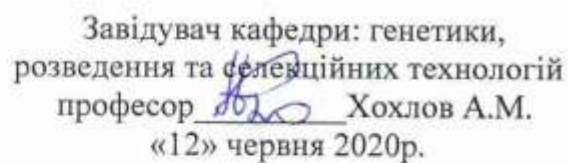 Завідувач кафедри: генетики,
розведення та селекційних технологій
професор__________Хохлов А.М.
«12» червня 2020р.